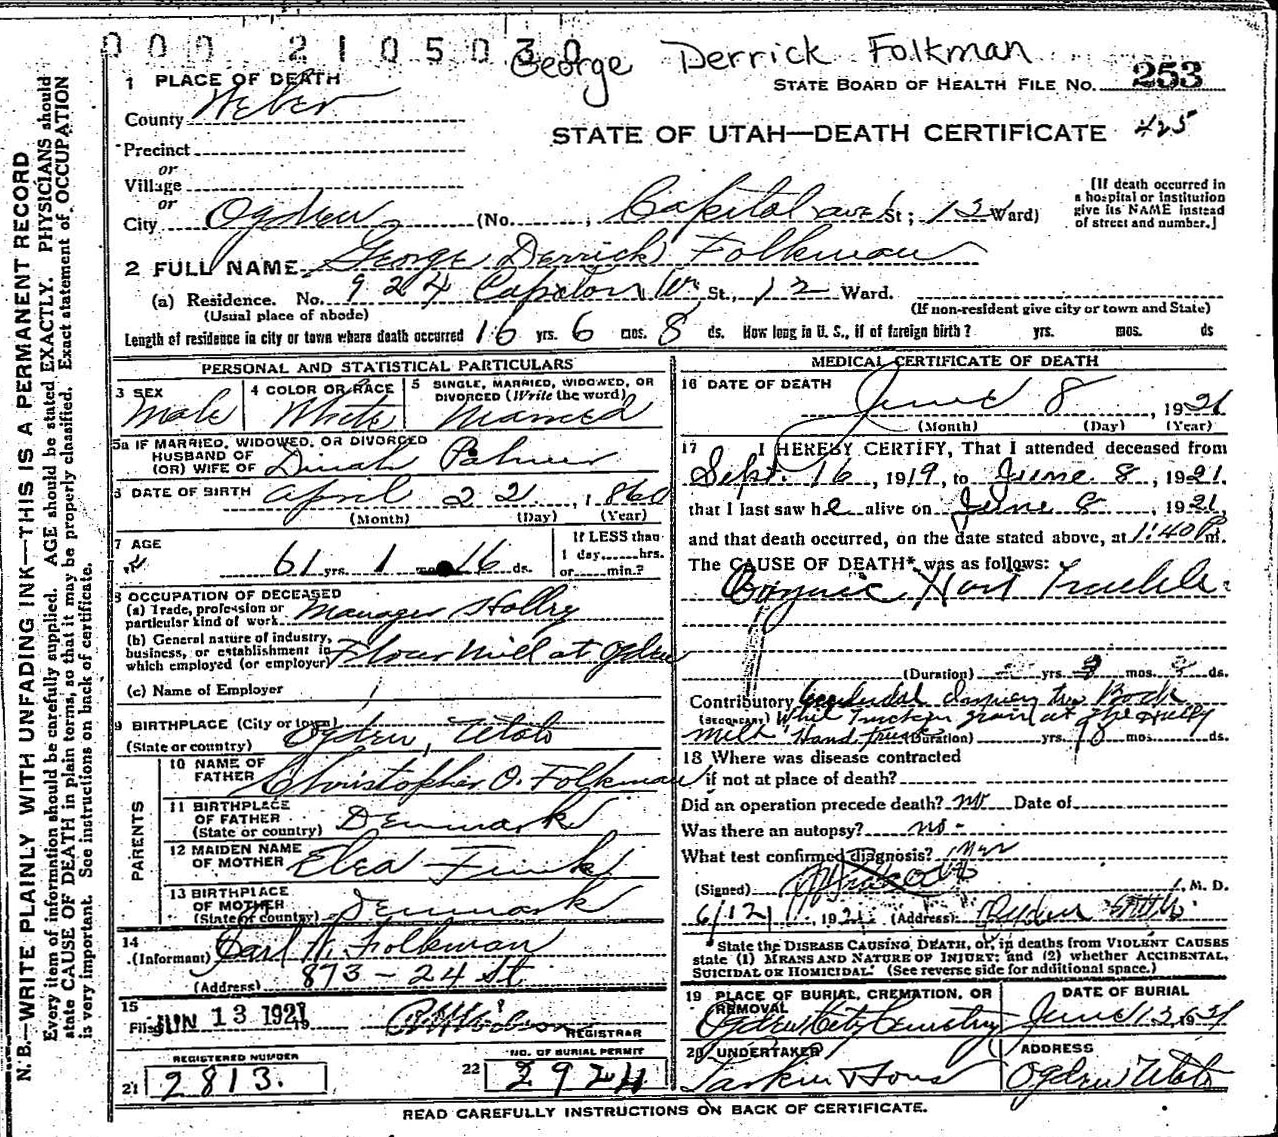 000 2105030
George Derrick Folkman
1 PLACE OF DEATH
STATE BOARD OF HEALTH FILE NO. 253
County Weber
STATE OF UTAH—DEATH CERTIFICATE 425
Precinct
or
Village
or
City Ogden (No. ; Capitol ave St; 12 Ward)
[If death occurred in
a hospital or institution
give its NAME instead
of street and number.]
2 FULL NAME George Derrick Folkman
(a) Residence. No. 924 St., 12 Ward.
(Usual place of abode)
(If non-resident give city or town and State)
Length of residence in city or town where death occurred 16 yrs. 6 mos. 8 ds. How long in U. S., if of foreign birth? yrs. mos. ds
PERSONAL AND STATISTICAL PARTICULARS
3 SEX
Male
4 COLOR OR RACE
White
5 SINGLE, MARRIED, WIDOWED, OR
DIVORCED (Write the word)
Married
5a IF MARRIED, WIDOWED, OR DIVORCED
HUSBAND OF
(OR) WIFE OF Dinah Palmer
6 DATE OF BIRTH April 22, 1860
(Month) (Day) (Year)
7 AGE
61 yrs. 1 mos 16 ds.
If LESS than
1 day......hrs.
or......min.?
8 OCCUPATION OF DECEASED
(a) Trade, profession or
particular kind of work Manager Holley
(b) General nature of industry,
business, or establishment in
which employed (or employer) Flour Mill at Ogden
(c) Name of Employer
9 BIRTHPLACE (City or town)
(State or country) Ogden, Utah
PARENTS
10 NAME OF
FATHER Christopher O. Folkman
11 BIRTHPLACE
OF FATHER
(State or country) Denmark
12 MAIDEN NAME
OF MOTHER Elea Funk
13 BIRTHPLACE
OF MOTHER
(State or country) Denmark
14
(Informant) Carl W. Folkman
(Address) 873 - 24 St.
15
Filed JUN 13 1921 19
REGISTRAR
REGISTERED NUMBER
21 2813.
NO. OF BURIAL PERMIT
22 2924
MEDICAL CERTIFICATE OF DEATH
16 DATE OF DEATH
June 8, 1921
(Month) (Day) (Year)
17 I HEREBY CERTIFY, That I attended deceased from
Sept. 16, 1919, to June 8, 1921,
that I last saw he alive on June 8, 1921,
and that death occurred, on the date stated above, at 1:40 P m.
The CAUSE OF DEATH* was as follows:
Organic Hart Trouble.
(Duration) yrs. mos. ds.
Contributory
(SECONDARY) While Truckin grain at the Holley
Mill Hand truck (Duration) yrs. mos. ds.
18 Where was disease contracted
if not at place of death?
Did an operation precede death? no Date of
Was there an autopsy? no -
What test confirmed diagnosis?
(Signed) M. D.
6/12, 1921 (Address) Ogden Utah
*State the DISEASE CAUSING DEATH, or, in deaths from VIOLENT CAUSES
state (1) MEANS AND NATURE OF INJURY; and (2) whether ACCIDENTAL,
SUICIDAL OR HOMICIDAL. (See reverse side for additional space.)
19 PLACE OF BURIAL, CREMATION, OR
REMOVAL
Ogden City Cemetry
DATE OF BURIAL
June 12, 1921
20 UNDERTAKER
Larkin & Sons
ADDRESS
Ogden Utah
READ CAREFULLY INSTRUCTIONS ON BACK OF CERTIFICATE.
N. B.—WRITE PLAINLY WITH UNFADING INK—THIS IS A PERMANENT RECORD
Every item of information should be carefully supplied. AGE should be stated EXACTLY. PHYSICIANS should
state CAUSE OF DEATH in plain terms, so that it may be properly classified. Exact statement of OCCUPATION
is very important. See instructions on back of certificate.